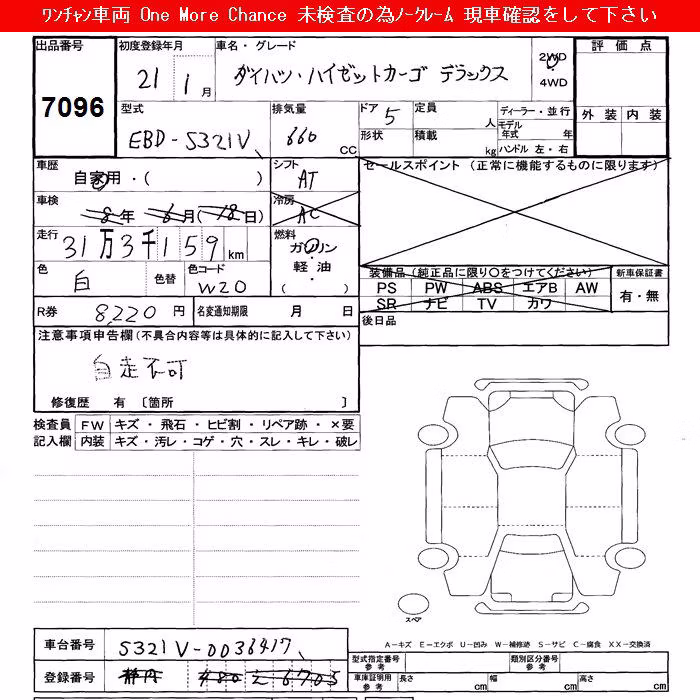 ﾜﾝﾁｬﾝ車両 One More Chance 未検査の為ﾉｰｸﾚｰﾑ 現車確認をして下さい
出品番号 初度登録年月 車名・グレード 2WD ・ 4WD 評価点
7096 21 1月 ダイハツ・ハイゼットカーゴ デラックス
型式 排気量 ドア 定員 ディーラー・並行 外装 内装
EBD-S321V 660 CC 5 人 モデル年式 年
形状 積載 kg ハンドル 左・右
車歴 シフト セールスポイント (正常に機能するものに限ります)
自家用・( ) AT
車検 冷房
8年 6月(18日) AC
走行 燃料
31万3千159km ガソリン・軽油・( )
色 色替 色コード 装備品(純正品に限り○をつけてください) 新車保証書
白 W20 PS PW ABS エアB AW 有・無
SR ナビ TV カワ
R券 8,220円 名変通知期限 月 日 後日品
注意事項申告欄(不具合内容等は具体的に記入して下さい)
自走不可
修復歴 有 〔箇所 〕
検査員 FW キズ・飛石・ヒビ割・リペア跡・×要
記入欄 内装 キズ・汚レ・コゲ・穴・スレ・キレ・破レ
スペア
A－キズ E－エクボ U－凹み W－補修跡 S－サビ C－腐食 XX－交換済
車台番号 S321V-0036417
型式指定番号 参考 類別区分番号 参考
登録番号 静岡 480 え 6703
車庫証明用 参考 長さ cm 幅 cm 高さ cm